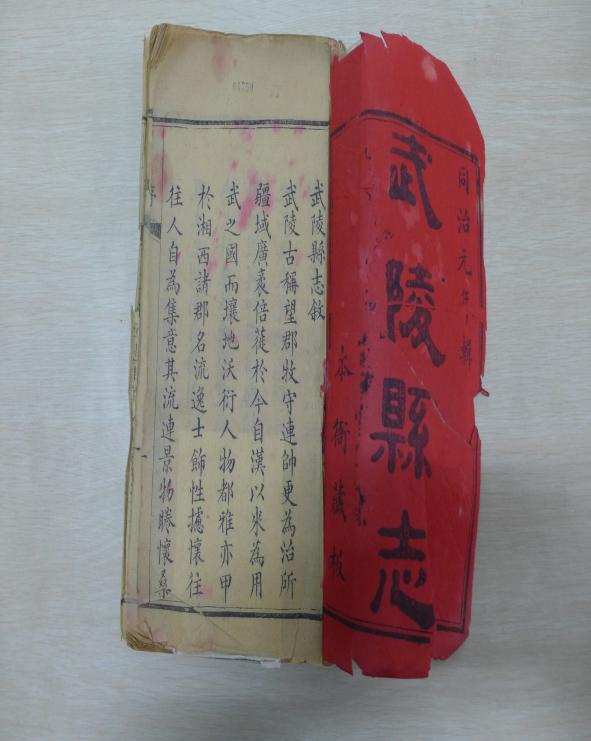 同治元年輯
武陵縣志
本衙藏板
武陵縣志敘
武陵古稱望郡牧守連帥更為治所
疆域廣袤倍蓰於今自漢以來為用
武之國而壤地沃衍人物都雅亦甲
於湘西諸郡名流逸士飾性攄懷往
往人自為集意其流連景物勝懷